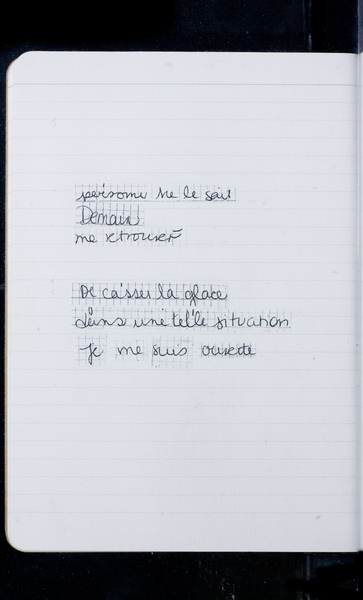 personne ne le sait
Demain
me retrouver
De casser la glace
dans une telle situation
Je me suis ouverte